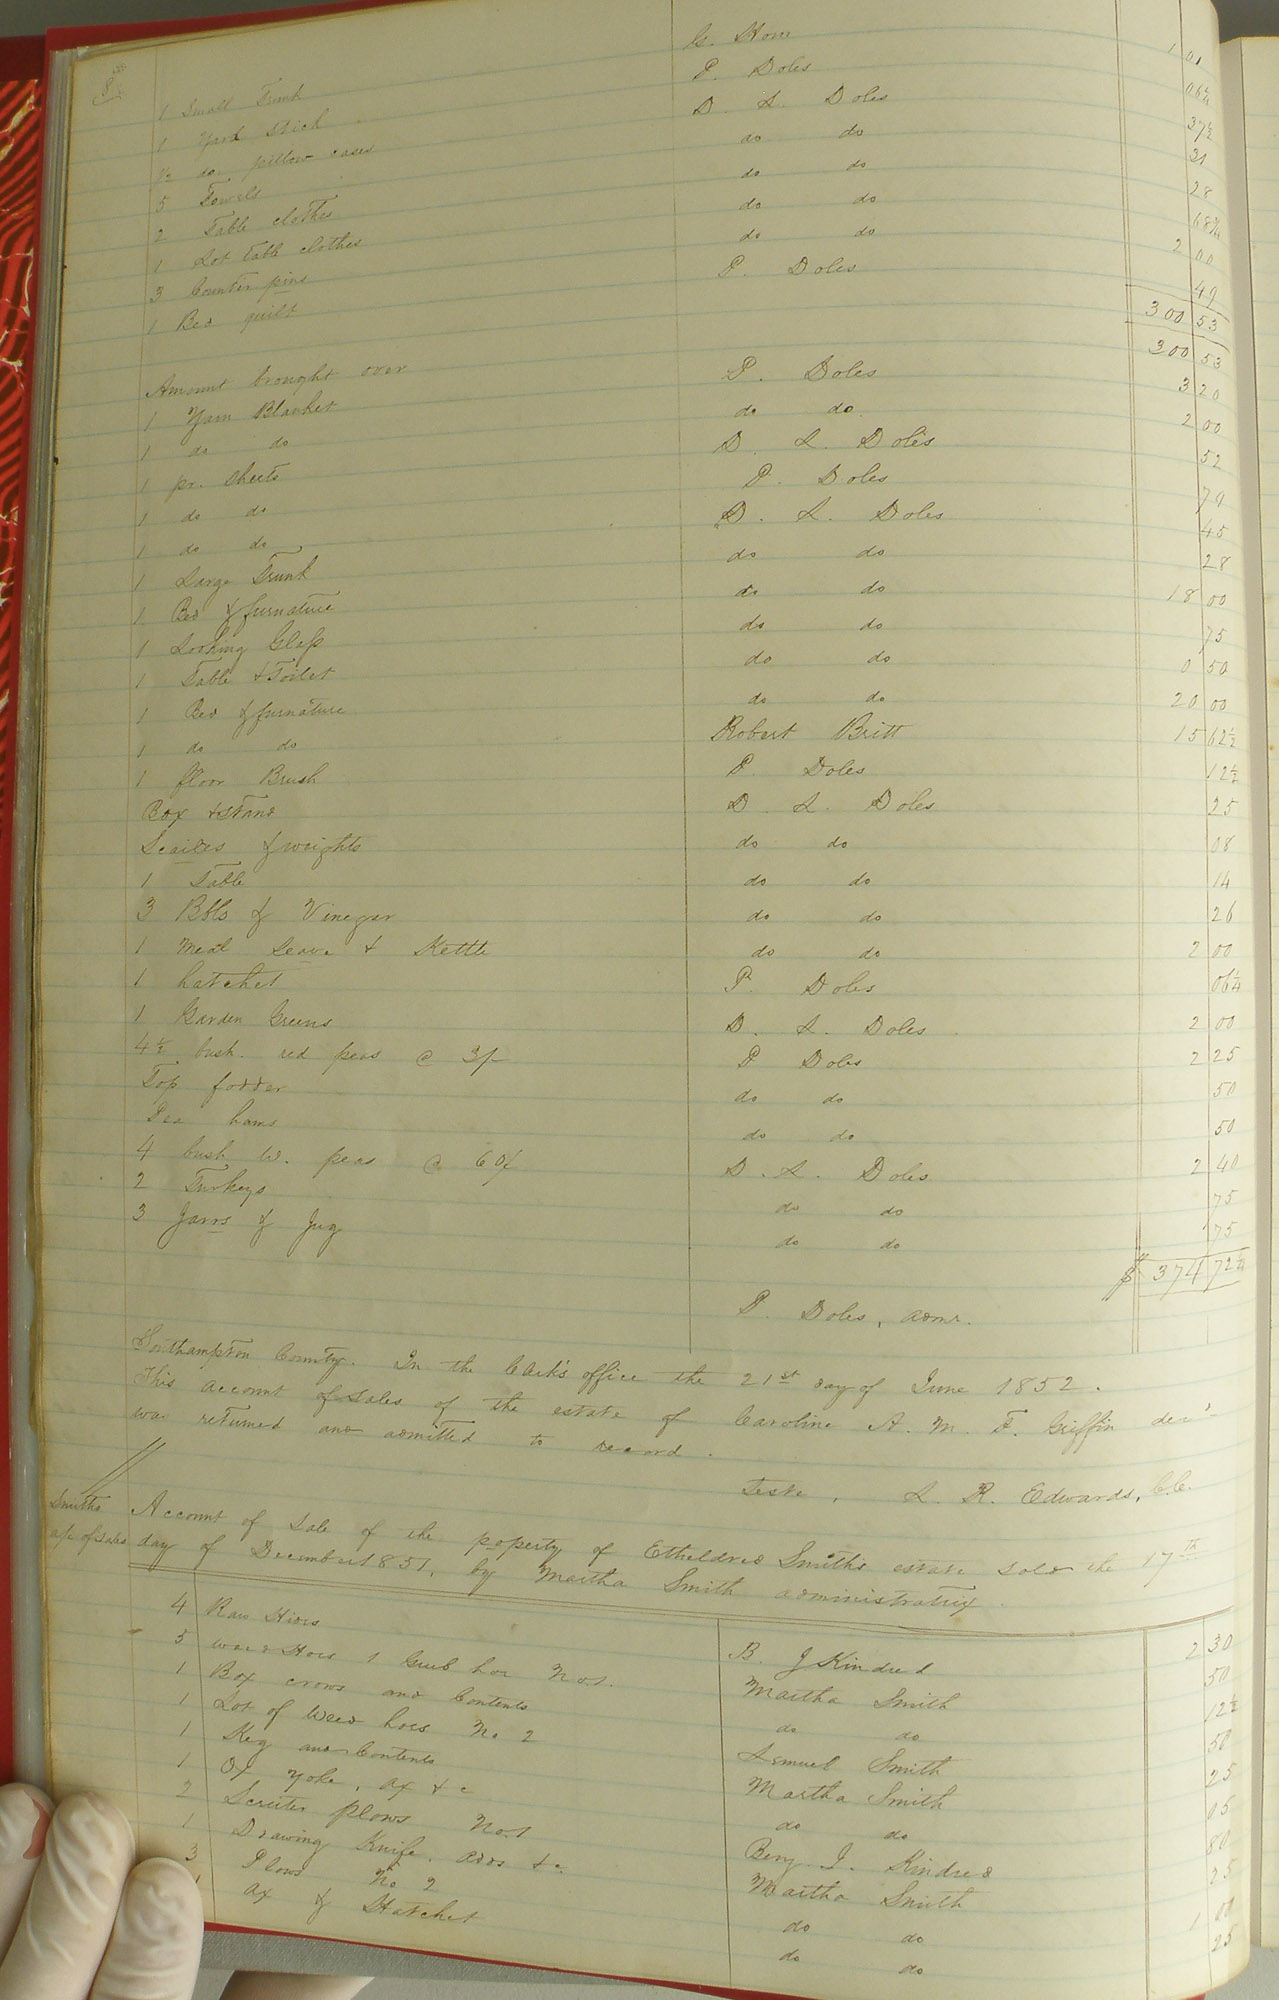 8
1 Small Trunk G. Hom 1 01
1 Yard Stick P. Doles 06¼
½ do. pillow cases D. L. Doles 37½
5 Towels do do 31
2 Table clothes do do 28
1 Lot table clothes do do 68¾
3 Counter pins do do 2 00
1 Bed quilt P. Doles 49
300 53
Amount brought over 300 53
1 Yarn Blanket P. Doles 3 20
1 do do do do. 2 00
1 pr. Sheets D. L. Doles 52
1 do do P. Doles 79
1 do do D. L. Doles 45
1 Large Trunk do do 28
1 Bed & furnature do do 18 00
1 Looking Glass do do 75
1 Table & Toilet do do 0 50
1 Bed & furnature do do 20 00
1 do do Robert Britt 15 62½
1 floor Brush P. Doles 12½
Box & stand D. L. Doles 25
Scailes & weights do do 08
1 Table do do 14
3 Bbls & Vinegar do do 26
1 Meal Seave & Kettle do do 2 00
1 hatchet P. Doles 06¼
1 Garden Greens D. L. Doles 2 00
4½ bush. red peas @ 3/- P Doles 2 25
Top fodder do do 50
Pea hams do do 50
4 bush W. peas @ 60¢ D. L. Doles 2 40
2 Turkeys do do 75
3 Jarrs & Jug do do 75
$ 374 72¼
P. Doles, admr.
Southampton County. In the Clerk's office the 21st day of June 1852.
This account of sales of the estate of Caroline A. M. F. Griffin decd
was returned and admitted to record.
Teste, L. R. Edwards, C.C.
Smiths Account of Sale of the poperty of Etheldred Smith's estate sold the 17th
a/c of sales day of December 1851, by Martha Smith administratrix.
4 Raw Hides B. J Kindred 2 30
5 weed Hoes 1 Grub hoe No 1. Martha Smith 50
1 Box crows and Contents do do 12½
1 Lot of Weed hoes No 2 Lemuel Smith 50
1 Keg and Contents Martha Smith 25
1 Ox yoke, ax &c do do 05
2 Scruter plows No 1 Benj. J. Kindred 80
1 Drawing Knife, adds &c. Martha Smith 25
3 Plows No 2 do do 1 00
1 ax & Hatchet do do 25